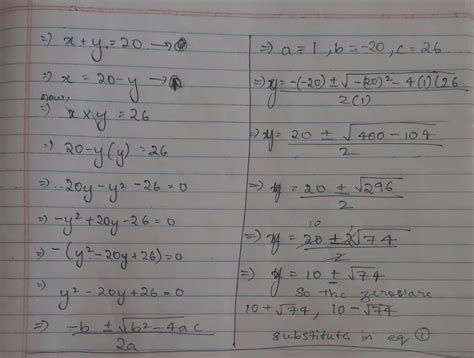 ⇒ x + y = 20 → ①
⇒ x = 20 - y →
now,
⇒ x × y = 26
⇒ 20 - y (y) = 26
⇒ 20y - y² - 26 = 0
⇒ -y² + 20y - 26 = 0
⇒ -(y² - 20y + 26) = 0
⇒ y² - 20y + 26 = 0
⇒ -b ± √b² - 4ac / 2a
⇒ a = 1, b = -20, c = 26
⇒ y = -(-20) ± √-(20)² - 4(1)(26 / 2(1)
⇒ y = 20 ± √400 - 104 / 2
⇒ y = 20 ± √296 / 2
10
⇒ y = 20 ± 2√74 / 2
⇒ y = 10 ± √74
So the zeros are
10 + √74, 10 - √74
substitute in eq ①